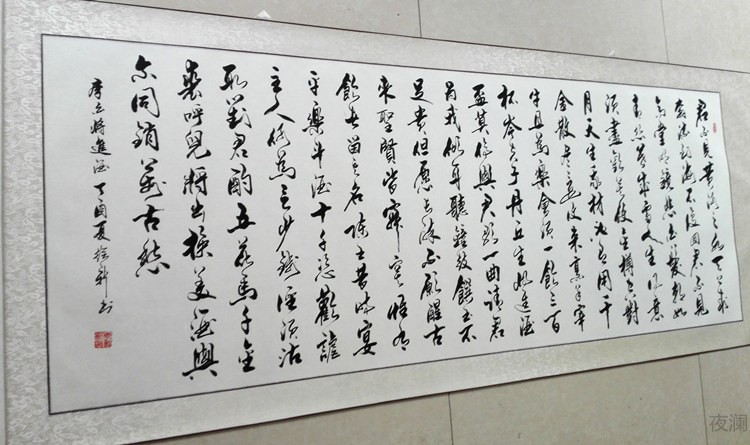 君不見黄河之水天上來
奔流到海不復回君不見
高堂明鏡悲白髮朝如
青絲暮成雪人生得意
須盡歡莫使金樽空對
月天生我材必有用千
金散盡還復來烹羊宰
牛且為樂會須一飲三百
杯岑夫子丹丘生將進酒
盃莫停與君歌一曲請君
為我傾耳聽鐘鼓饌玉不
足貴但願長醉不願醒古
來聖賢皆寂寞惟有
飲者留其名陳王昔時宴
平樂斗酒十千恣歡謔
主人何為言少錢徑須沽
取對君酌五花馬千金
裘呼兒將出換美酒與
尔同銷萬古愁
李白將進酒 丁酉夏 书
夜澜